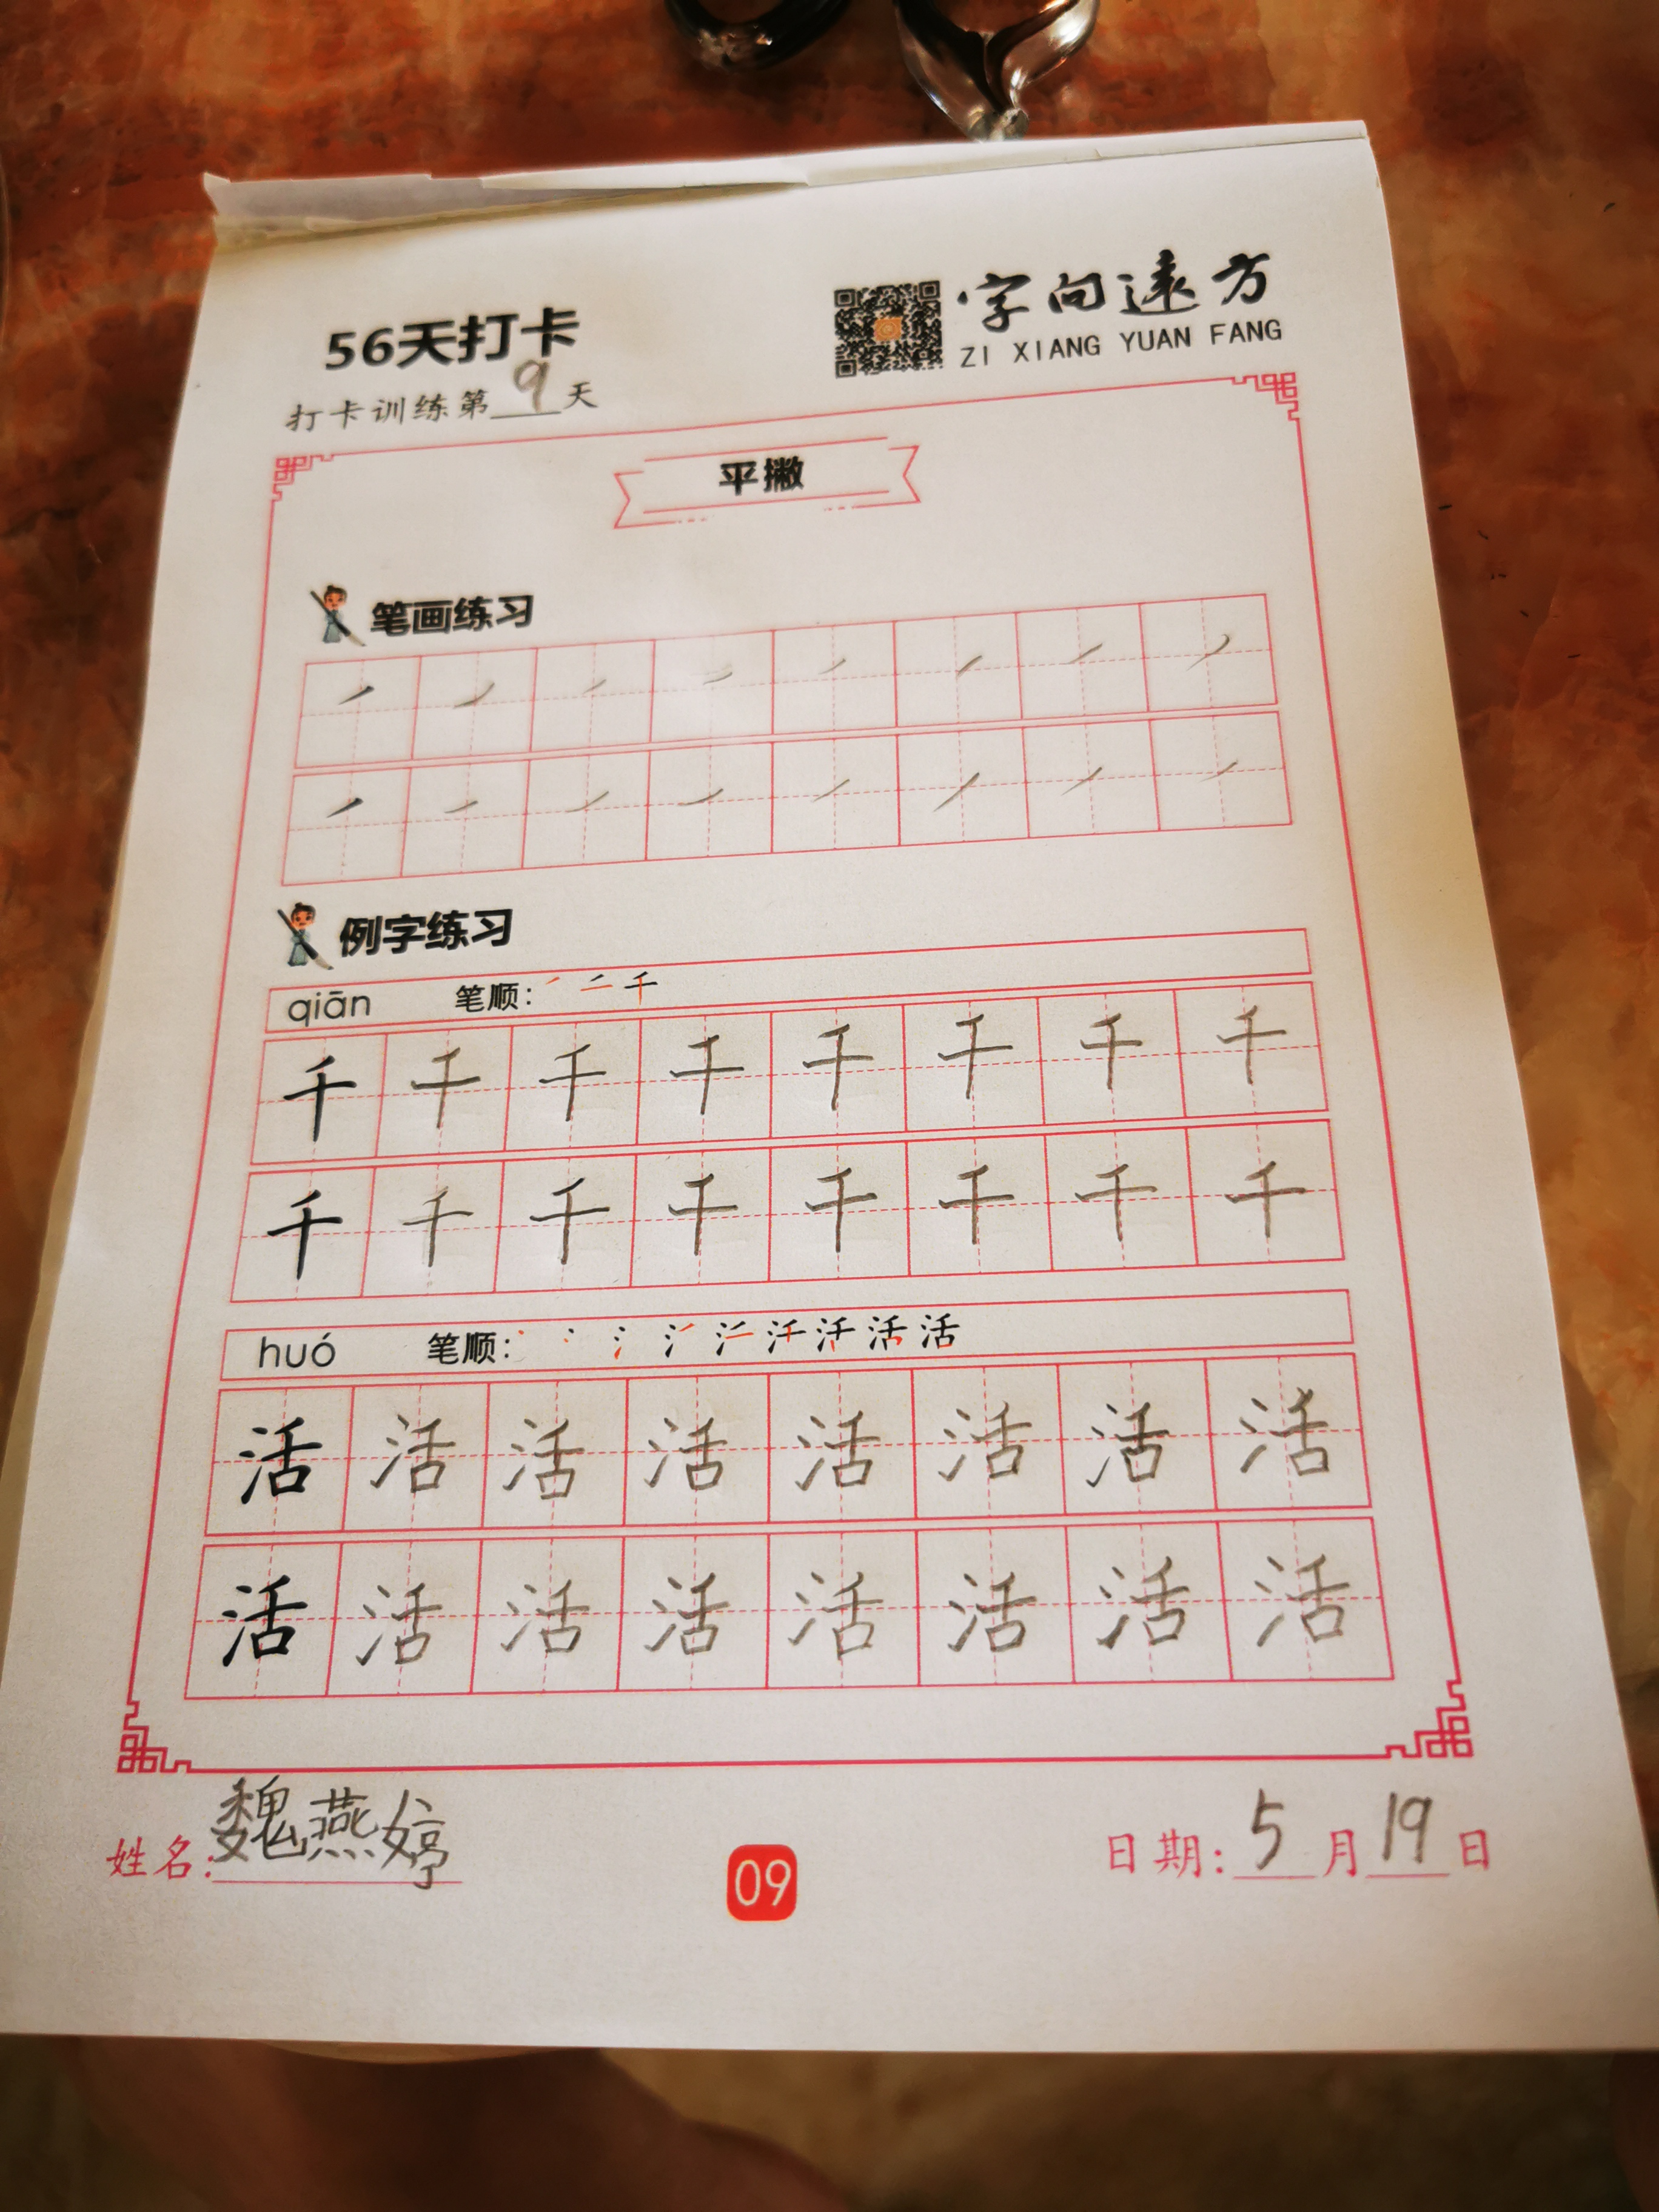 56天打卡
打卡训练第9天
字向远方
ZI XIANG YUAN FANG
平撇
笔画练习
例字练习
qiān 笔顺:
千 千 千 千 千 千 千 千
千 千 千 千 千 千 千 千
huó 笔顺:
活 活 活 活 活 活 活 活
活 活 活 活 活 活 活 活
姓名:魏燕婷
09
日期:5月19日